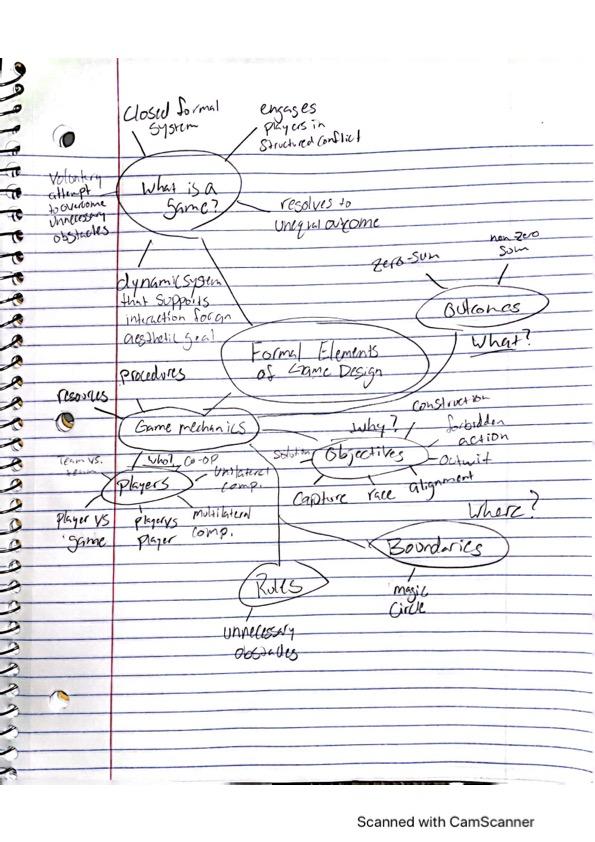 Closed formal
system
engages
players in
structured conflict
Voluntary
attempt
to overcome
unnecessary
obstacles
What is a
game?
resolves to
unequal outcome
dynamic system
that supports
interaction for an
aesthetic goal
zero-sum
non zero
sum
Outcomes
What?
Formal Elements
of Game Design
procedures
resources
Game mechanics
why?
construction
forbidden
action
Solution
Objectives
Outwit
Capture
race
alignment
Team vs.
team
who?
co-op
Unilateral
comp.
players
player vs
game
player vs
player
multilateral
comp.
Where?
Boundaries
magic
Circle
Rules
unnecessary
obstacles
Scanned with CamScanner